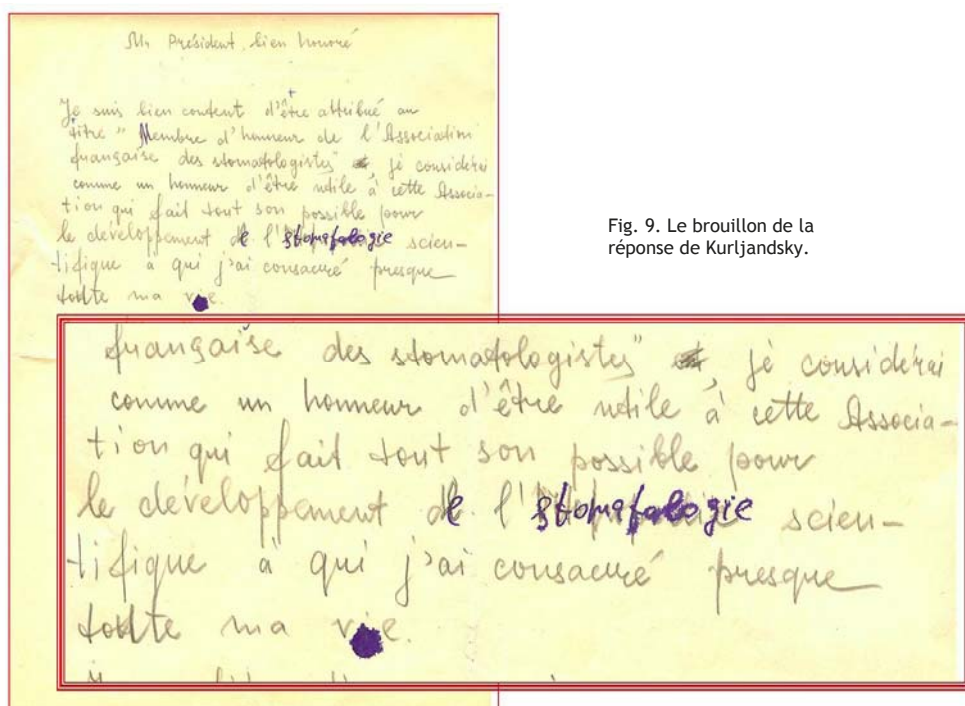 Mr Président bien honoré
Je suis bien content d'être attribué au
titre " Membre d'honneur de l'Association
française des stomatologistes", je considérai
comme un honneur d'être utile à cette Associa-
tion qui fait tout son possible pour
le développement de l'stomatologie scien-
tifique à qui j'ai consacré presque
toute ma vie.
Fig. 9. Le brouillon de la
réponse de Kurljandsky.
française des stomatologistes", je considérai
comme un honneur d'être utile à cette Associa-
tion qui fait tout son possible pour
le développement de l'stomatologie scien-
tifique à qui j'ai consacré presque
toute ma vie.